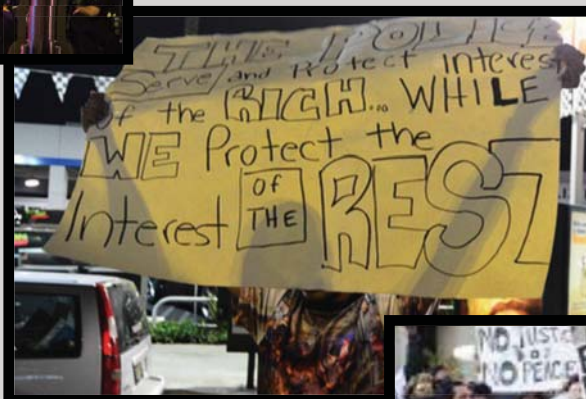 THE POLICE
Serve and Protect Interest
of the RICH... WHILE
WE Protect the
Interest OF THE REST
NO JUSTICE
NO PEACE